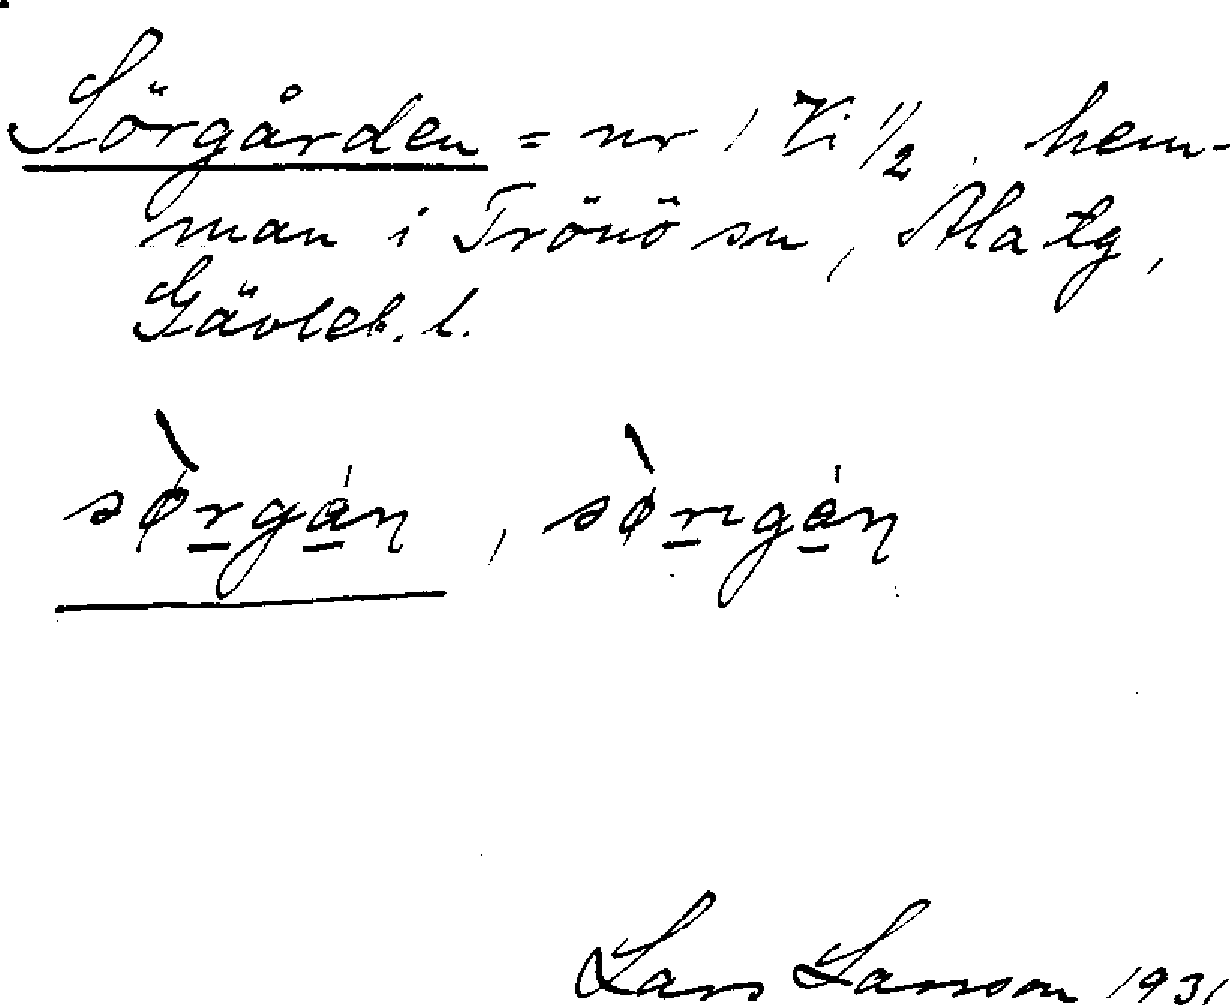 Sörgården = nr 1 Vi 1/2 hem-
man i Trönö sn, Ala tg,
Gävleb. l.
sø̀rgán, sø̀rigán
Lars Larsson 1931